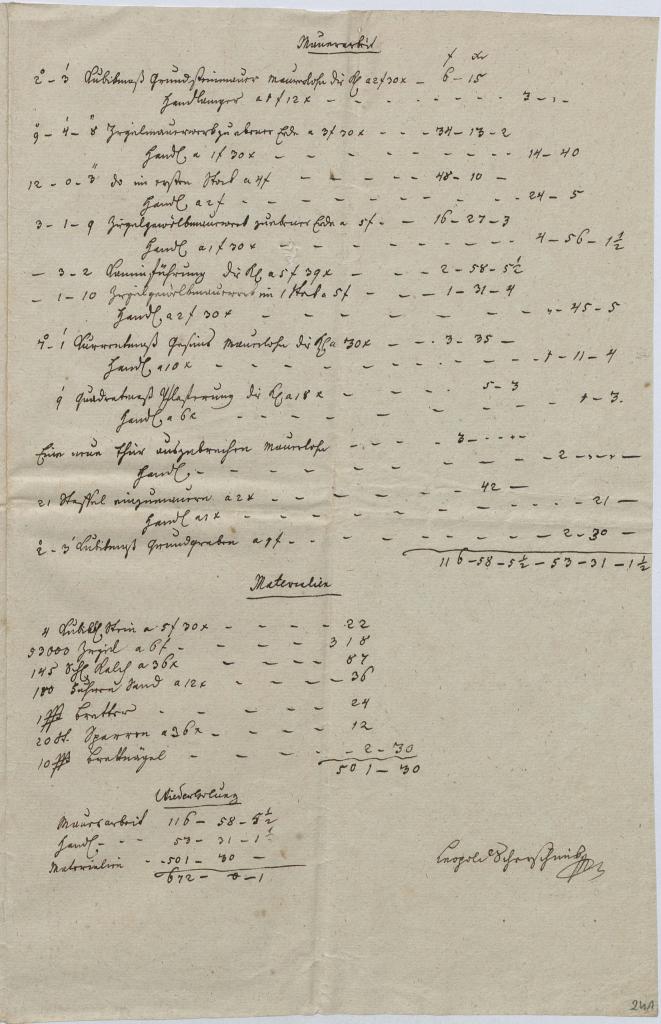 Maurerarbeit
f xr
2° – 3' Cubikmaß Grundsteinmauer Maurerlohn die Kl. a 2 f 30 x – 6 – 15
Handlanger a 1 f 12 x – – – 3 – „ –
9° – 4' – 8" Ziegelmauerwerk zu ebener Erde a 3 f 30 x – – 34 – 13 – 2
Handl. a 1 f 30 x – – – 14 – 40
12 – 0 – 3" do im ersten Stock a 4 f – – 48 – 10 –
Handl. a 2 f – – – 24 – 5
3 – 1 – 9 Ziegelgewölbmauerwerk zu ebener Erde a 5 f – – 16 – 27 – 3
Handl. a 1 f 30 x – – – 4 – 56 – 1½
– 3 – 2 Caminführung die Kl. a 5 f 39 x – – 2 – 58 – 5½
– 1 – 10 Ziegelgewölbmauerwerk im 1 Stock a 5 f – – 1 – 31 – 4
Handl. a 2 f 30 x – – – „ – 45 – 5
1' Currentmaß Gesims Maurerlohn die Kl. a 30 x – – 3 – 35 –
Handl. a 10 x – – – 1 – 11 – 4
9 Quadratmaß Pflasterung die Kl. a 18 x – – 5 – 3
Handl. a 6 x – – – 1 – 3.
Eine neue Thür auszubrechen Maurerlohn – – 3 – – – –
Handl. – – – 2 – – – –
21 Staffel einzumauern a 2 x – – 42 –
Handl. a 1 x – – – 21 –
2° – 3' Cubikmaß Grundgraben a 1 f – – – 2 – 30 –
116 – 58 – 5½ – 53 – 31 – 1½
Materialien
4 Cubikkl. Stein a 5 f 30 x – – – 22
53000 Ziegel a 6 f – – – 318
145 Kalch a 36 x – – – 87
180 Fuhren Sand a 12 x – – – 36
1 Bretter – – – 24
20 St. Sparren a 36 x – – – 12
10 Brettnägel – – – 2 – 30
501 – 30
Wiederholung
Maurerarbeit 116 – 58 – 5½
Handl. – – 53 – 31 – 1½
Materialien – – 501 – 30 –
672 – 0 – 1
Leopold
241